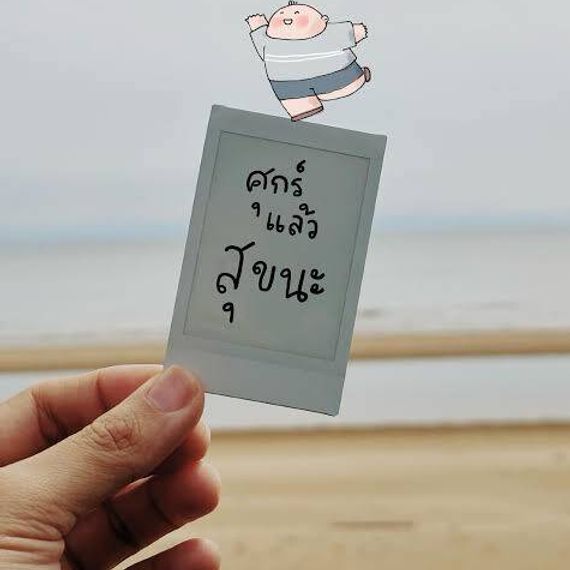 ศุกร์
แล้ว
สุขนะ